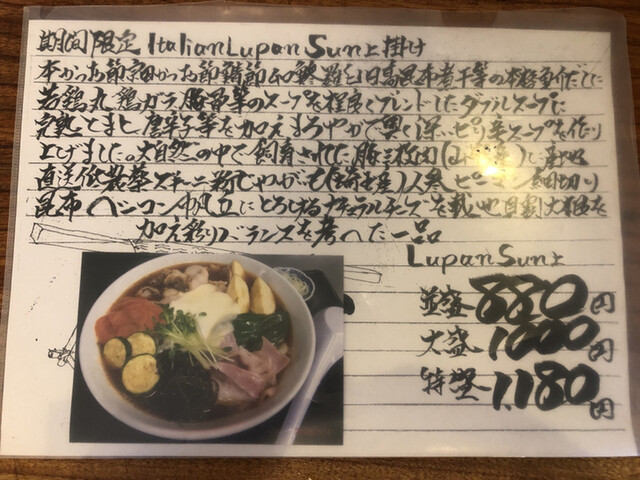 期間限定 Italian Lupan Sun上掛け
本かつお節宗田かつお節鯖節 日高昆布煮干等の本格魚介だしに
若鶏丸鶏ガラ豚骨等のスープを程良くブレンドしたダブルスープに
完熟とまと唐辛子等を加えまろやかで奥く深いピリ辛スープを作り
上げました。大自然の中で飼育された豚三枚肉
直送低農薬ズキーニ粉じゃがいも(埼玉産)人参、ピーマン細切り
昆布ベーコン帆立にとろけるナチュラルチーズを載せ
加え彩りバランスを考へた一品
Lupan Sun上
並盛880円
大盛1000円
特盛1,180円